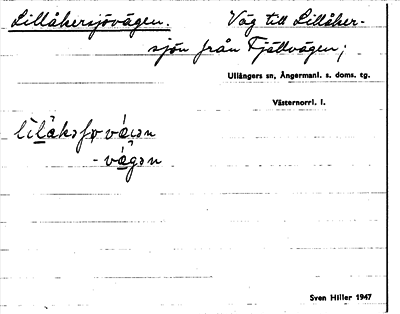 Lillåkersjövägen. Väg till Lillåker-
sjön från Fjällvägen;
Ullångers sn, Ångermanl. s. doms. tg.
Västernorrl. l.
-vágən
Sven Hiller 1947